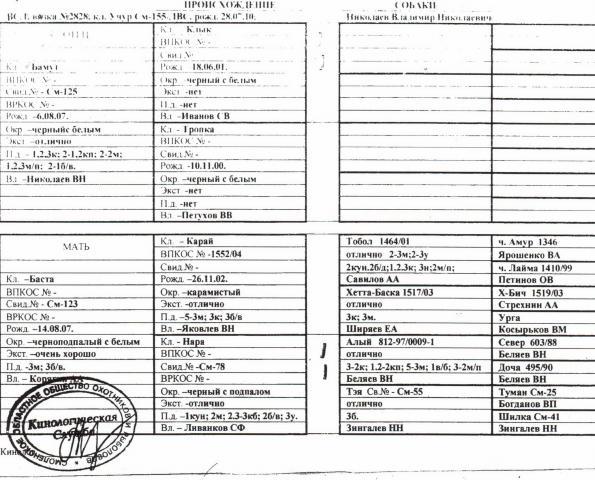 ПРОИСХОЖДЕНИЕ СОБАКИ
ВС, I, вязка №2828; кл. Учур См-155, 1ВС, рожд. 28.07.10, Николаев Владимир Николаевич
ОТЕЦ
Кл. – Бамут
ВПКОС № -
Свид.№ - См-125
ВРКОС № -
Рожд. -6.08.07.
Окр. –черныйс белым
Экст. –отлично
П.д. - 1,2,3к; 2-1,2кп; 2-2м;
1,2,3м/п; 2-1б/в.
Вл. –Николаев ВН
Кл. - Клык
ВПКОС № -
Свид.№ -
Рожд. -18.06.01.
Окр. –черный с белым
Экст. -нет
П.д. -нет
Вл. –Иванов СВ
Кл. - Тропка
ВПКОС № -
Свид.№ -
Рожд. -10.11.00.
Окр. –черный с белым
Экст. -нет
П.д. -нет
Вл. –Петухов ВВ
МАТЬ
Кл. –Баста
ВПКОС № -
Свид.№ - См-123
ВРКОС № -
Рожд. –14.08.07.
Окр. –черноподпалый с белым
Экст. –очень хорошо
П.д. -3м; 3б/в.
Вл. –
Кл. – Карай
ВПКОС № -1552/04
Свид.№ -
Рожд. –26.11.02.
Окр. –карамистый
Экст. -отлично
П.д. –5-3м; 3к; 3б/в
Вл. –Яковлев ВН
Кл. - Нара
ВПКОС № -
Свид.№ -См-78
ВРКОС № -
Окр. –черный с подпалом
Экст. -отлично
П.д. –1кун; 2м; 2.3-3кб; 2б/в; 3у.
Вл. – Ливанков СФ
Тобол 1464/01
отлично 2-3м;2-3у
2кун.2б/д;1.2.3к; 3н;2м/п;
Савилов АА
Хетта-Баска 1517/03
отлично
3к; 3м.
Ширяев ЕА
Алый 812-97/0009-1
отлично
3-2к; 1.2-2кп; 5-3м; 1в/б; 3-2м/п
Беляев ВН
Тэя Св.№ - См-55
отлично
3б.
Зингалев НН
ч. Амур 1346
Ярошенко ВА
ч. Лайма 1410/99
Петинов ОВ
Х-Бич 1519/03
Стрехнин АА
Урга
Косырьков ВМ
Север 603/88
Беляев ВН
Доча 495/90
Беляев ВН
Туман См-25
Богданов ВП
Шилка См-41
Зингалев НН
СМОЛЕНСКОЕ ОБЛАСТНОЕ ОБЩЕСТВО ОХОТНИКОВ И РЫБОЛОВОВ
Кинологическая
Служба